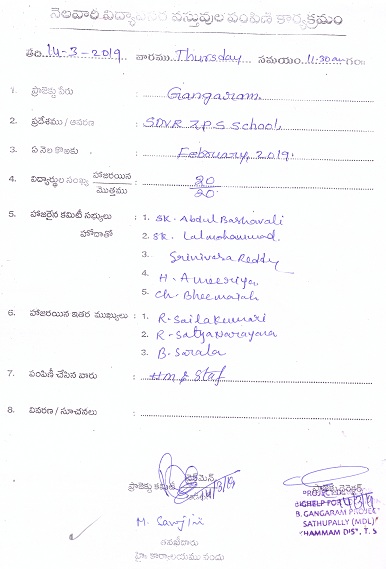 నెలవారీ విద్యావసర వస్తువుల పంపిణీ కార్యక్రమం
తేది. 14-3-2019 వారము Thursday సమయం 11.30 am గం॥
1. ప్రాజెక్టు పేరు : Gangaram
2. ప్రదేశము / ఆవరణ : SDVR Z.P.S School
3. ఏ నెల కొఱకు : February, 2019.
4. విద్యార్థుల సంఖ్య హాజరయిన / మొత్తము : 20 / 20
5. హాజరైన కమిటీ సభ్యులు : 1. SK. Abdul Bashavali
హోదాతో 2. SK. Lalmohammad.
3. Srinivasa Reddy
4. H. Ameeriya
5. Ch. Bheemaiah
6. హాజరయిన ఇతర ముఖ్యులు : 1. R. Sailakumari
2. R. Satyanarayana
3. B. Sarala
7. పంపిణీ చేసిన వారు : HM & Staf
8. వివరణ / సూచనలు :
ప్రాజెక్టు కమిటీ
14/3/19
BIGHELP FOR
B. GANGARAM PROJECT
SATHUPALLY (MDL)
KHAMMAM DIST, T.S
M. Sarojini